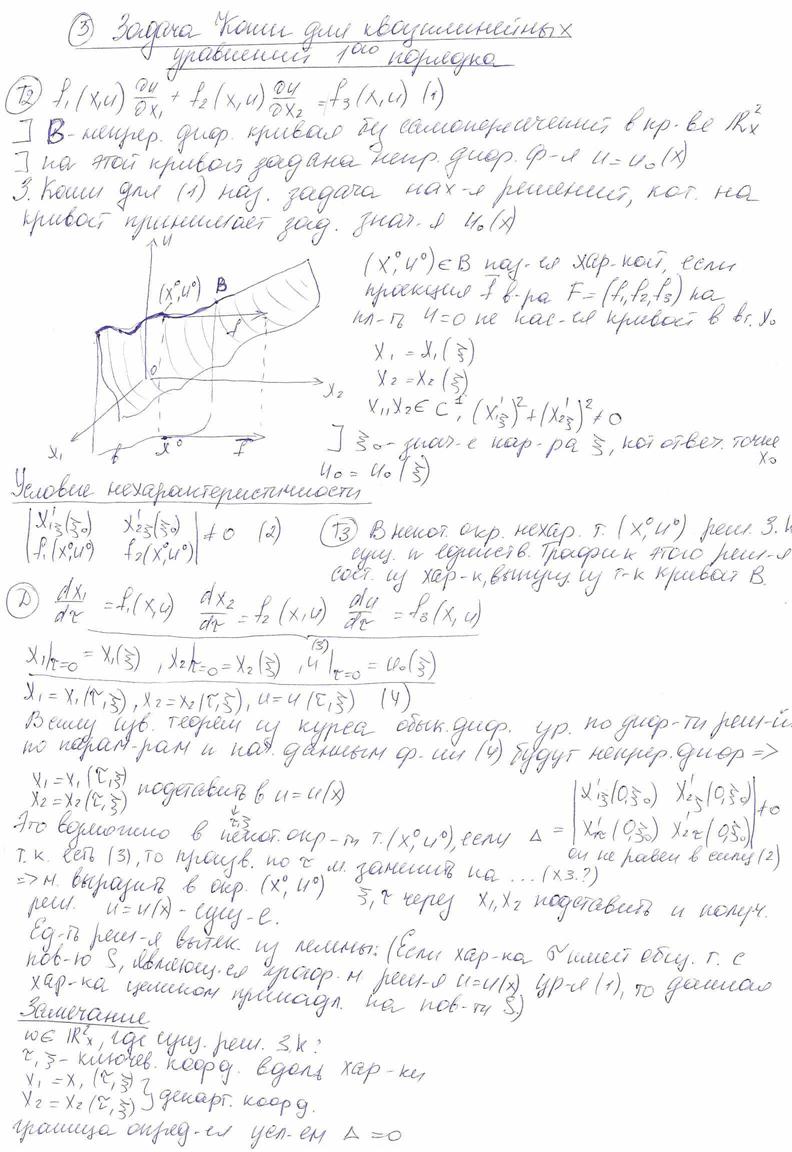 ③ Задача Коши для квазилинейных
уравнений 1ого порядка
T2 f₁(x,u) ∂u/∂x₁ + f₂(x,u) ∂u/∂x₂ = f₃(x,u) (1)
] B-непрер. диф. кривая без самопересечений в пр-ве ℝ²ₓ
] на этой кривой задана непр. диф. ф-я u=u₀(x)
З. Коши для (1) наз. задача нах-я решений, кот. на
кривой принимает зад. знач-я u₀(x)
u
(x⁰,u⁰)
B
f
0
x₂
x₁
b
x⁰
f
(x⁰,u⁰)∈B наз-ся хар-кой, если
проекция f в-ра F=(f₁,f₂,f₃) на
пл-ть u=0 не кас-ся кривой в т. x₀
x₁ = x₁(ξ)
x₂ = x₂(ξ)
x₁,x₂∈C¹, (x₁'ξ)²+(x₂'ξ)²≠0
] ξ₀-знач-е пар-ра ξ, кот отвеч. точке x₀
u₀ = u₀(ξ)
Условие нехарактеристичности
|x₁'ξ(ξ₀) x₂'ξ(ξ₀)|
|f₁(x⁰,u⁰) f₂(x⁰,u⁰)| ≠0 (2)
T3 В некот. окр. нехар. т. (x⁰,u⁰) реш. З.К
сущ. и единств. График этого реш-я
сост. из хар-к, выпущ. из т-к кривой B.
Д dx₁/dτ = f₁(x,u) dx₂/dτ = f₂(x,u) du/dτ = f₃(x,u)
(3)
x₁|τ=0 = x₁(ξ), x₂|τ=0 = x₂(ξ), u|τ=0 = u₀(ξ)
x₁=x₁(τ,ξ), x₂=x₂(τ,ξ), u=u(τ,ξ) (4)
В силу изв. теорем из курса обык. диф. ур. по диф-ти реш-й
по парам-рам и нач. данным ф-ии (4) будут непрер. диф =>
x₁=x₁(τ,ξ)
x₂=x₂(τ,ξ) подставить в u=u(x)
τ,ξ
Это возможно в некот. окр-ти т.(x⁰,u⁰), если Δ = |x₁'ξ(0,ξ₀) x₂'ξ(0,ξ₀)|
|x₁'τ(0,ξ₀) x₂'τ(0,ξ₀)| ≠0
он не равен в силу (2)
т.к. есть (3), то произв. по τ м. заменить на ... (хз.?)
=> м. выразить в окр. (x⁰,u⁰) ξ,τ через x₁,x₂ подставить и получ.
реш. u=u(x) - сущ-е.
Ед-ть реш-я вытек. из леммы: (Если хар-ка σ имеет общ. т. с
пов-ю S, являющ-ся графр.м реш-я u=u(x) ур-я (1), то данная
хар-ка целиком принадл. на пов-ти S)
Замечание
w∈ℝ²ₓ, где сущ. реш. З.К?
τ,ξ - ключев. коорд. вдоль хар-ки
x₁=x₁(τ,ξ)
x₂=x₂(τ,ξ) } декарт. коорд.
граница опред-ся усл-ем Δ=0